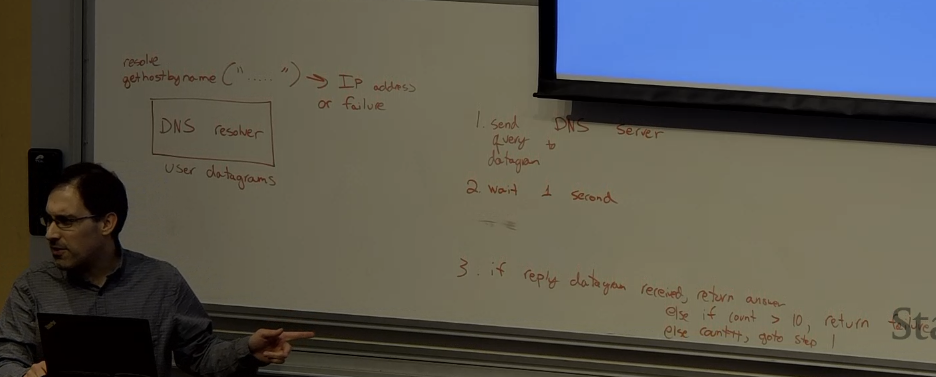 resolve
gethostbyname (".....") → IP address
or failure
DNS resolver
user datagrams
1. send DNS server
query to
datagram
2. wait 1 second
3. if reply datagram received, return answer
else if count > 10, return
else count++, goto step 1
Sta